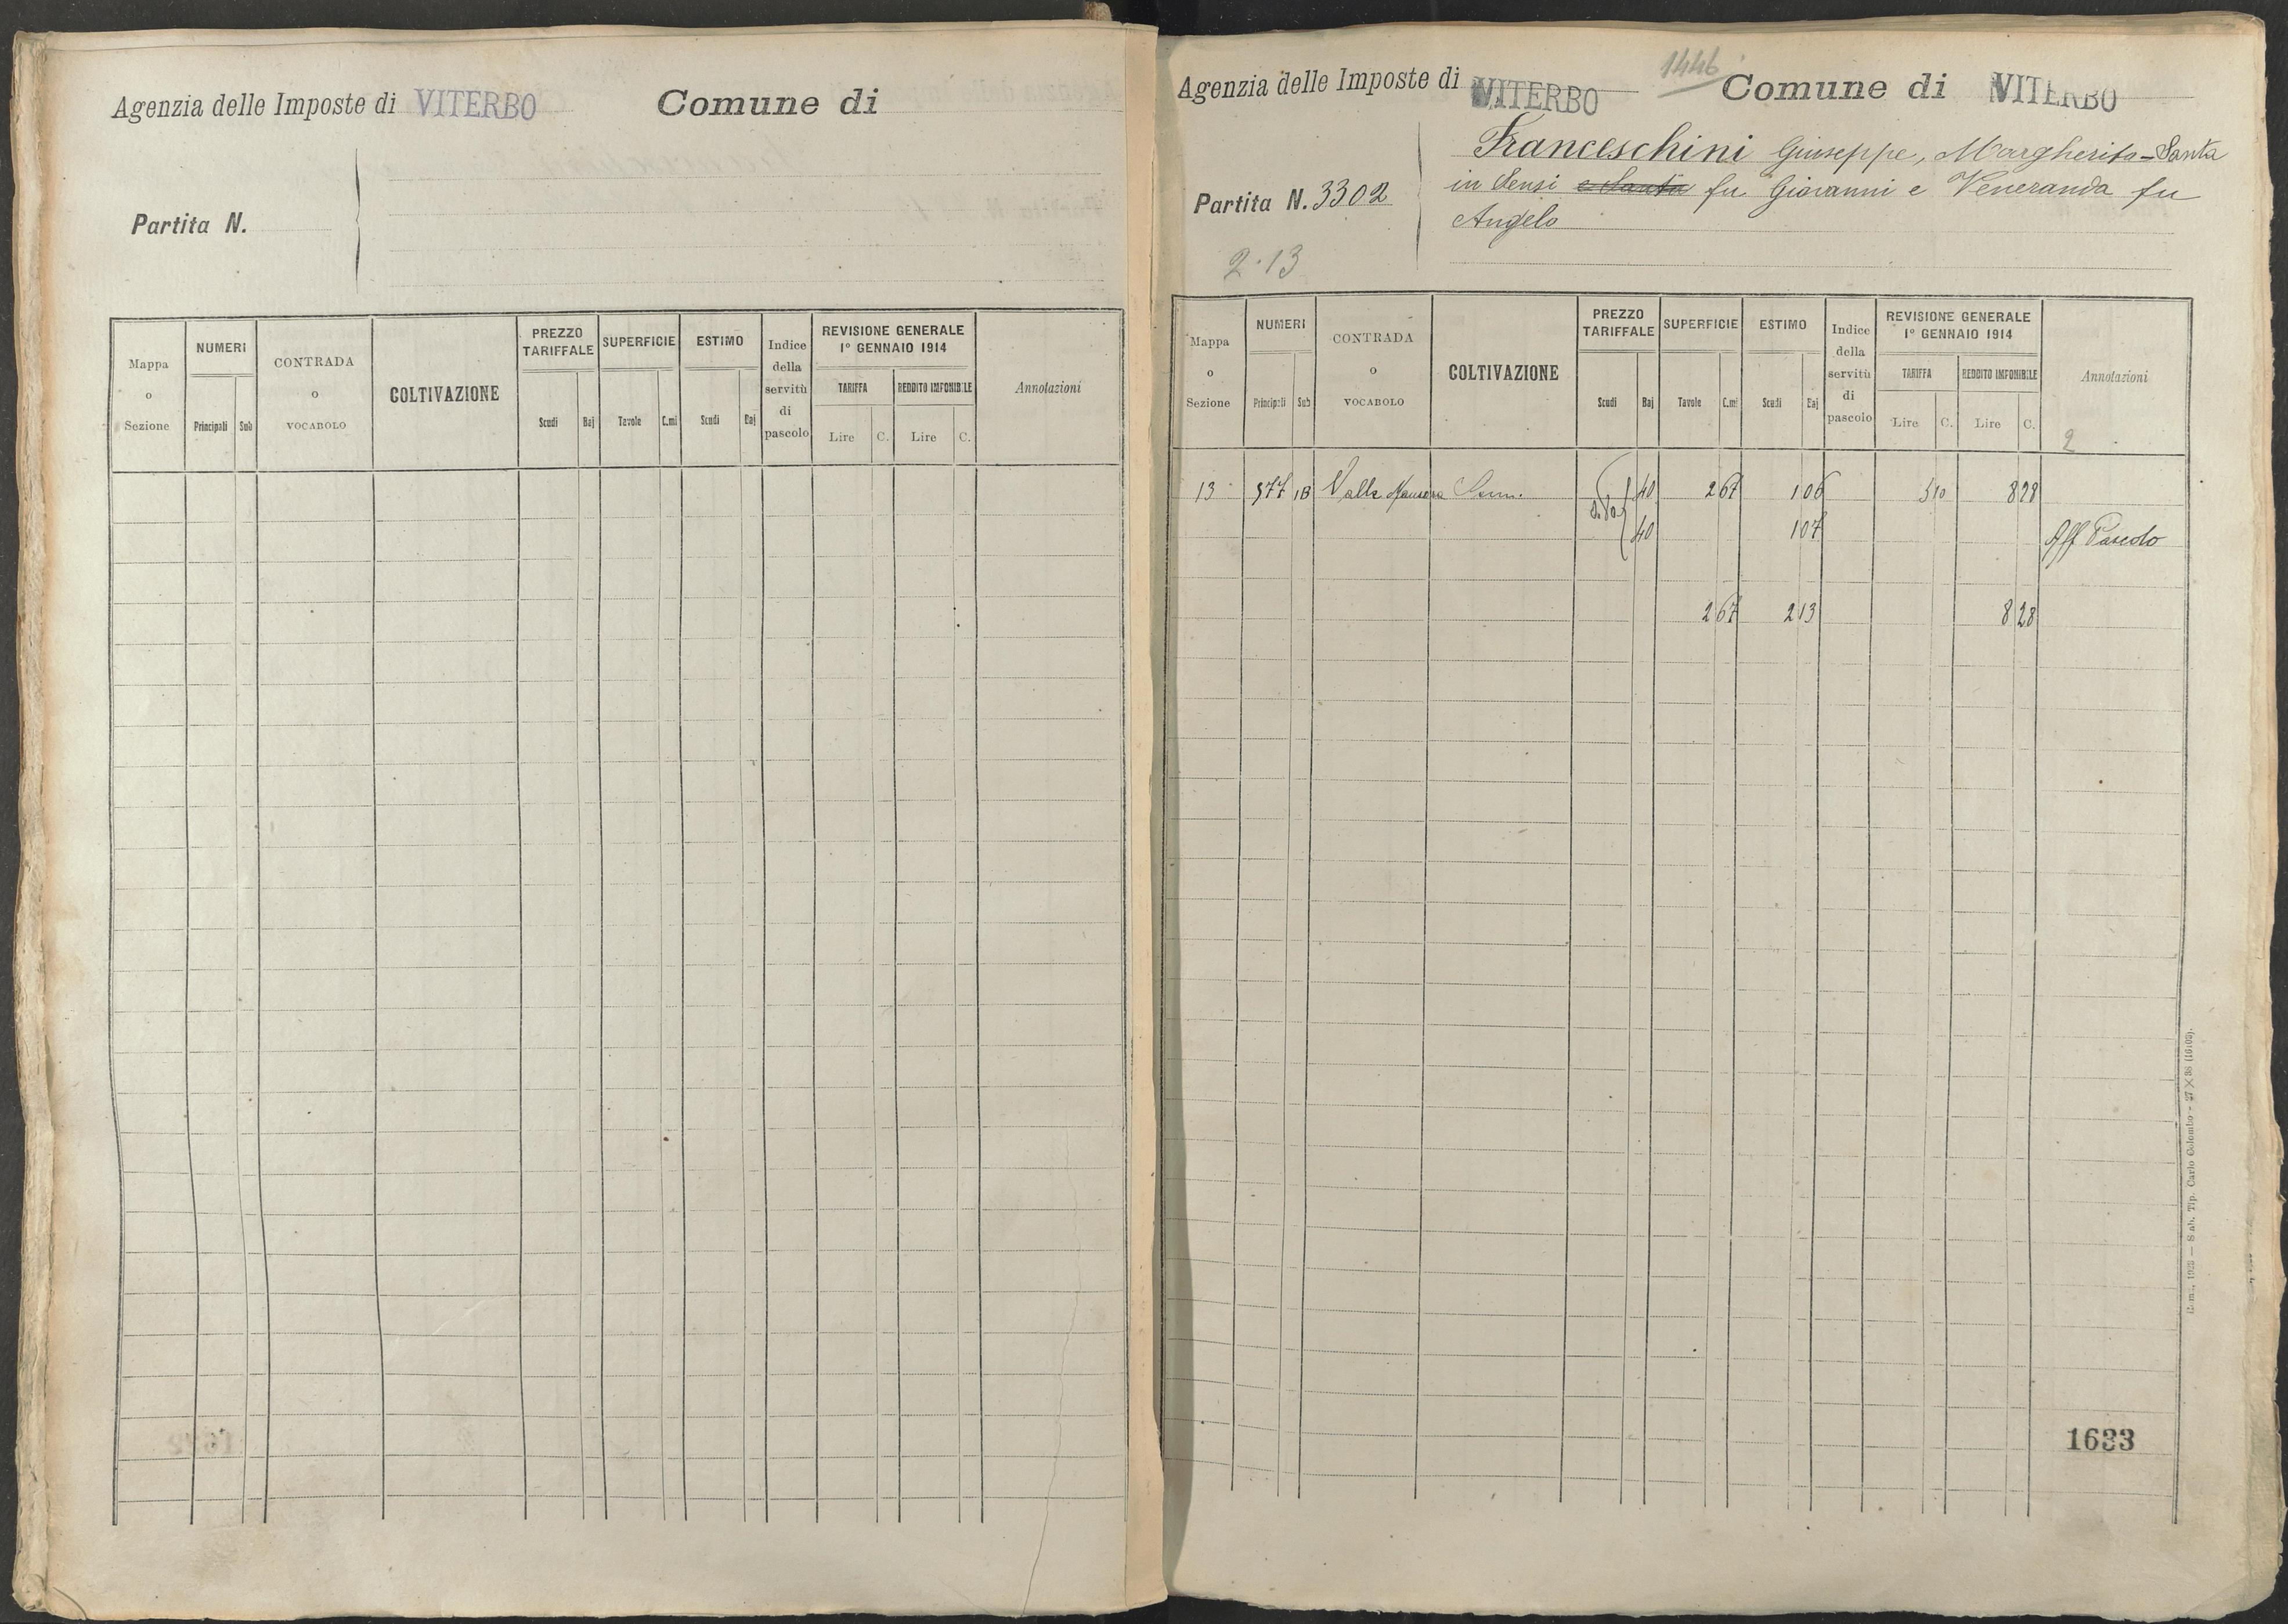 Agenzia delle Imposte di VITERBO Comune di
Partita N.
Mappa o Sezione
NUMERI
Principali Sub
CONTRADA o VOCABOLO
COLTIVAZIONE
PREZZO TARIFFALE
Scudi Baj
SUPERFICIE
Tavole C.mi
ESTIMO
Scudi Baj
Indice della servitù di pascolo
REVISIONE GENERALE
1º GENNAIO 1914
TARIFFA REDDITO IMPONIBILE
Lire C. Lire C.
Annotazioni
1446
Agenzia delle Imposte di VITERBO Comune di VITERBO
Franceschini Giuseppe, Margherita-Santa
in Sensi e Santa fu Giovanni e Veneranda fu
Angelo
Partita N. 3302
2.13
Mappa o Sezione
NUMERI
Principali Sub
CONTRADA o VOCABOLO
COLTIVAZIONE
PREZZO TARIFFALE
Scudi Baj
SUPERFICIE
Tavole C.mi
ESTIMO
Scudi Baj
Indice della servitù di pascolo
REVISIONE GENERALE
1º GENNAIO 1914
TARIFFA REDDITO IMPONIBILE
Lire C. Lire C.
Annotazioni
2
13 577 1B Valle Sem. 40 2 67 1 06 3 10 8 28
40 1 07 Aff Pascolo
2 67 2 13 8 28
1633
Roma, 1923 — Stab. Tip. Carlo Colombo - 27 × 38 (16103).